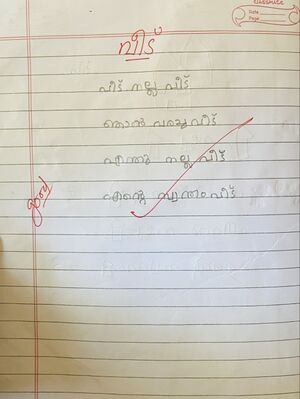 classmate
Date
Page
വീട്
വീട് നല്ല വീട്
ഞാൻ പറയും വീട്
എന്തു നല്ല വീട്
എന്റെ സ്വന്തം വീട്
good